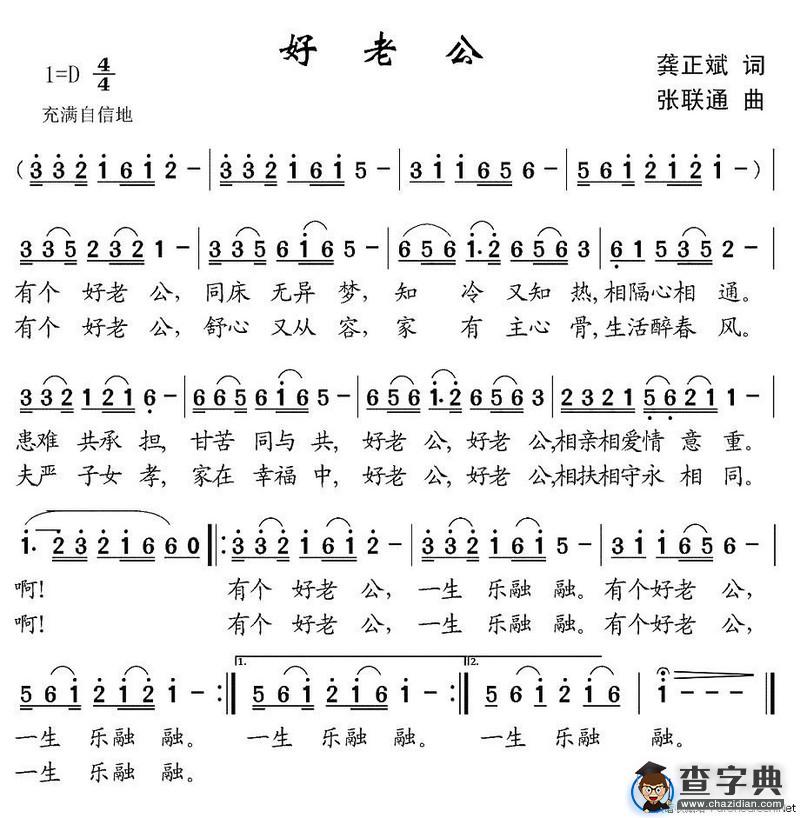 好老公
1=D 4/4
龚正斌 词
充满自信地
张联通 曲
(3 3 2 1 6 1 2 - | 3 3 2 1 6 1 5 - | 3 1 1 6 5 6 - | 5 6 1 2 1 2 1 - ) |
3 3 5 2 3 2 1 - | 3 3 5 6 1 6 5 - | 6 5 6 1· 2 6 5 6 3 | 6 1 5 3 5 2 - |
有个 好老 公, 同床 无异 梦, 知 冷 又知 热, 相隔心相 通。
有个 好老 公, 舒心 又从 容, 家 有 主心 骨, 生活醉春 风。
3 3 2 1 2 1 6 - | 6 6 5 6 1 6 5 - | 6 5 6 1· 2 6 5 6 3 | 2 3 2 1 5 6 2 1 1 - |
患难 共承 担, 甘苦 同与 共, 好老 公, 好老 公, 相亲相爱情 意 重。
夫严 子女 孝, 家在 幸福 中, 好老 公, 好老 公, 相扶相守永 相 同。
1· 2 3 2 1 6 6 0 |: 3 3 2 1 6 1 2 - | 3 3 2 1 6 1 5 - | 3 1 1 6 5 6 - |
啊! 有个 好老 公, 一生 乐融 融。 有个好老 公,
啊! 有个 好老 公, 一生 乐融 融。 有个好老 公,
1. 2.
5 6 1 2 1 2 1 - :| 5 6 1 2 1 2 1 - :| 5 6 1 2 1 2 | 1 - - - ‖
一生 乐融 融。 一生 乐融 融。 一生 乐融 融。
一生 乐融 融。
查字典
www.chazidian.com